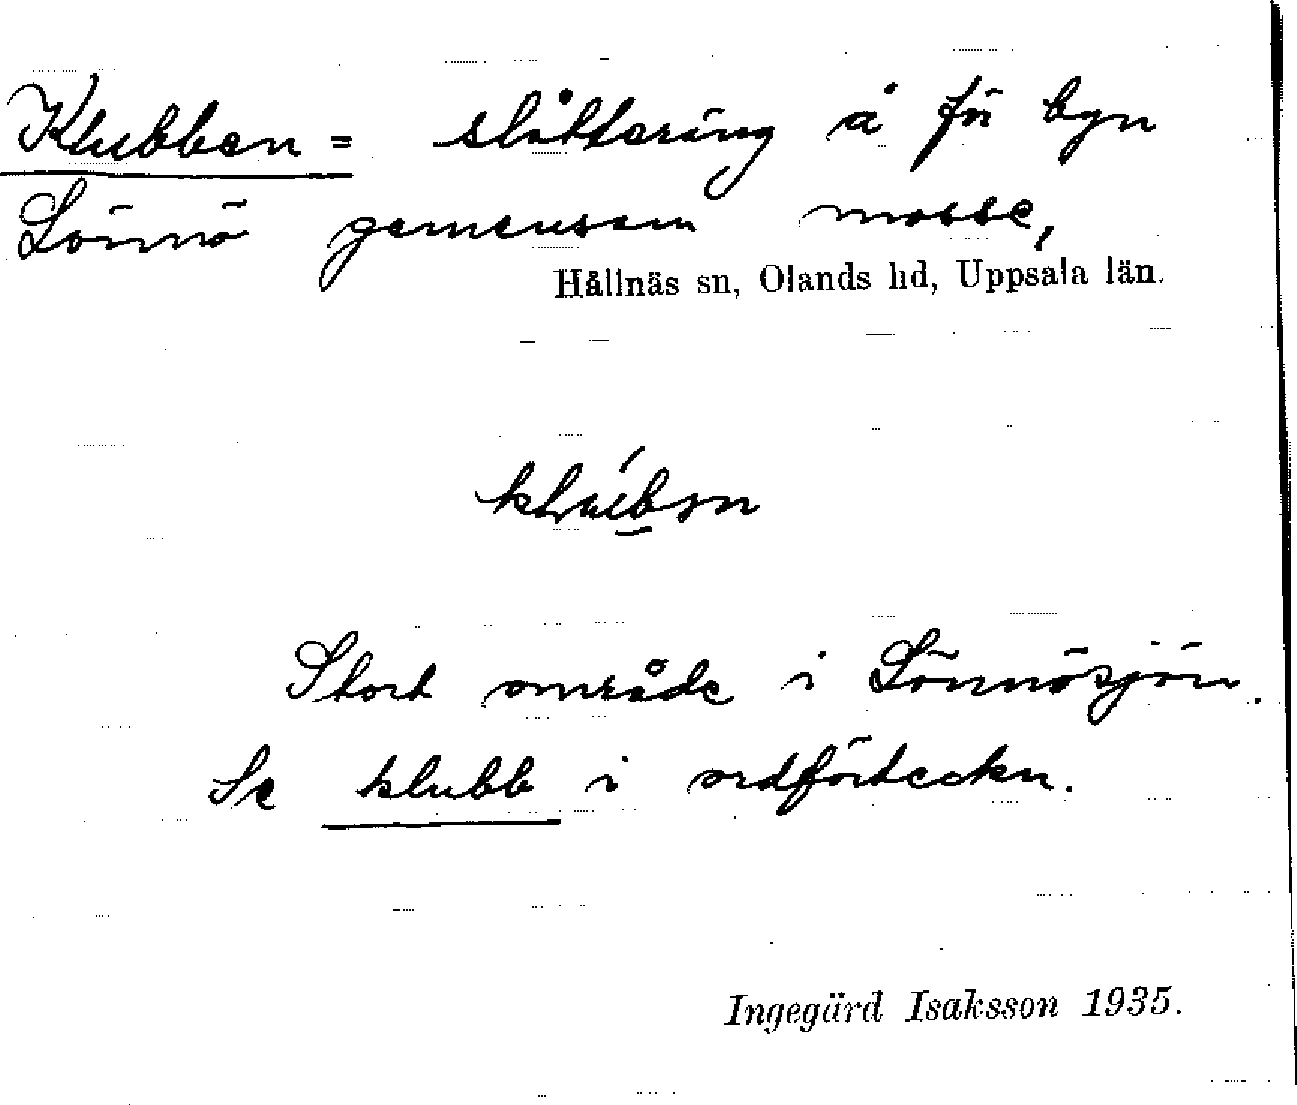 Klubben = slåttaräng å för byn
Lönnö gemensam mosse,
Hållnäs sn, Olands hd, Uppsala län.
Stort område i Lönnösjön.
Se klubb i ordförteckn.
Ingegärd Isaksson 1935.